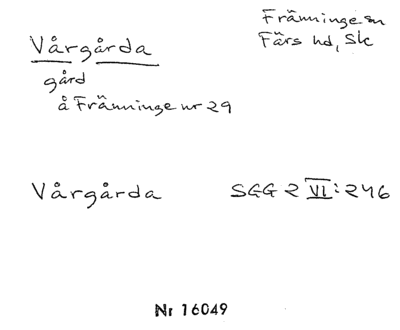 Vårgårda
Främninge sn
Färs hd, Sk
gård
å Främninge nr 29
Vårgårda SGG 2 VI: 246
Nr 16049